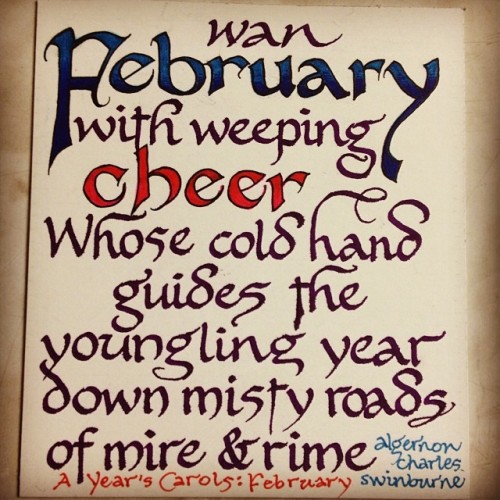 wan
February
with weeping
cheer
Whose cold hand
guides the
youngling year
down misty roads
of mire & rime
algernon
charles
swinburne
A Year's Carols: February